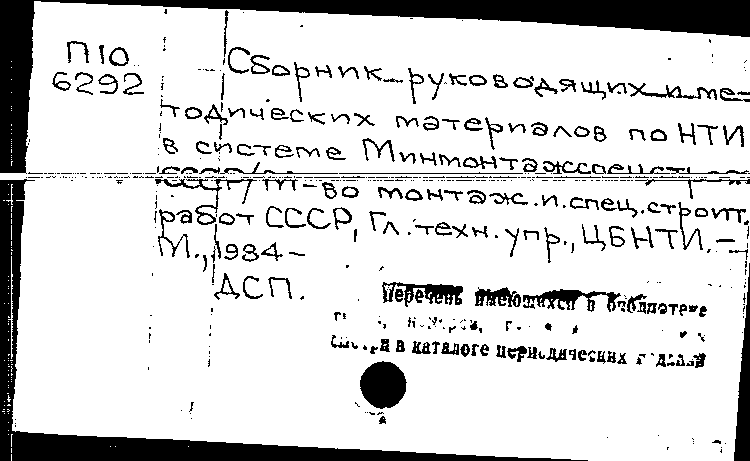 П10
6292
Сборник руководящих и ме-
тодических материалов по НТИ
в системе Минмонтажспецстроя
СССР/М-во монтаж. и спец. строит.
работ СССР, Гл. техн. упр., ЦБНТИ. –
М., 1984 –
ДСП.
Перечень имеющихся в библиотеке
в каталоге периодических изданий